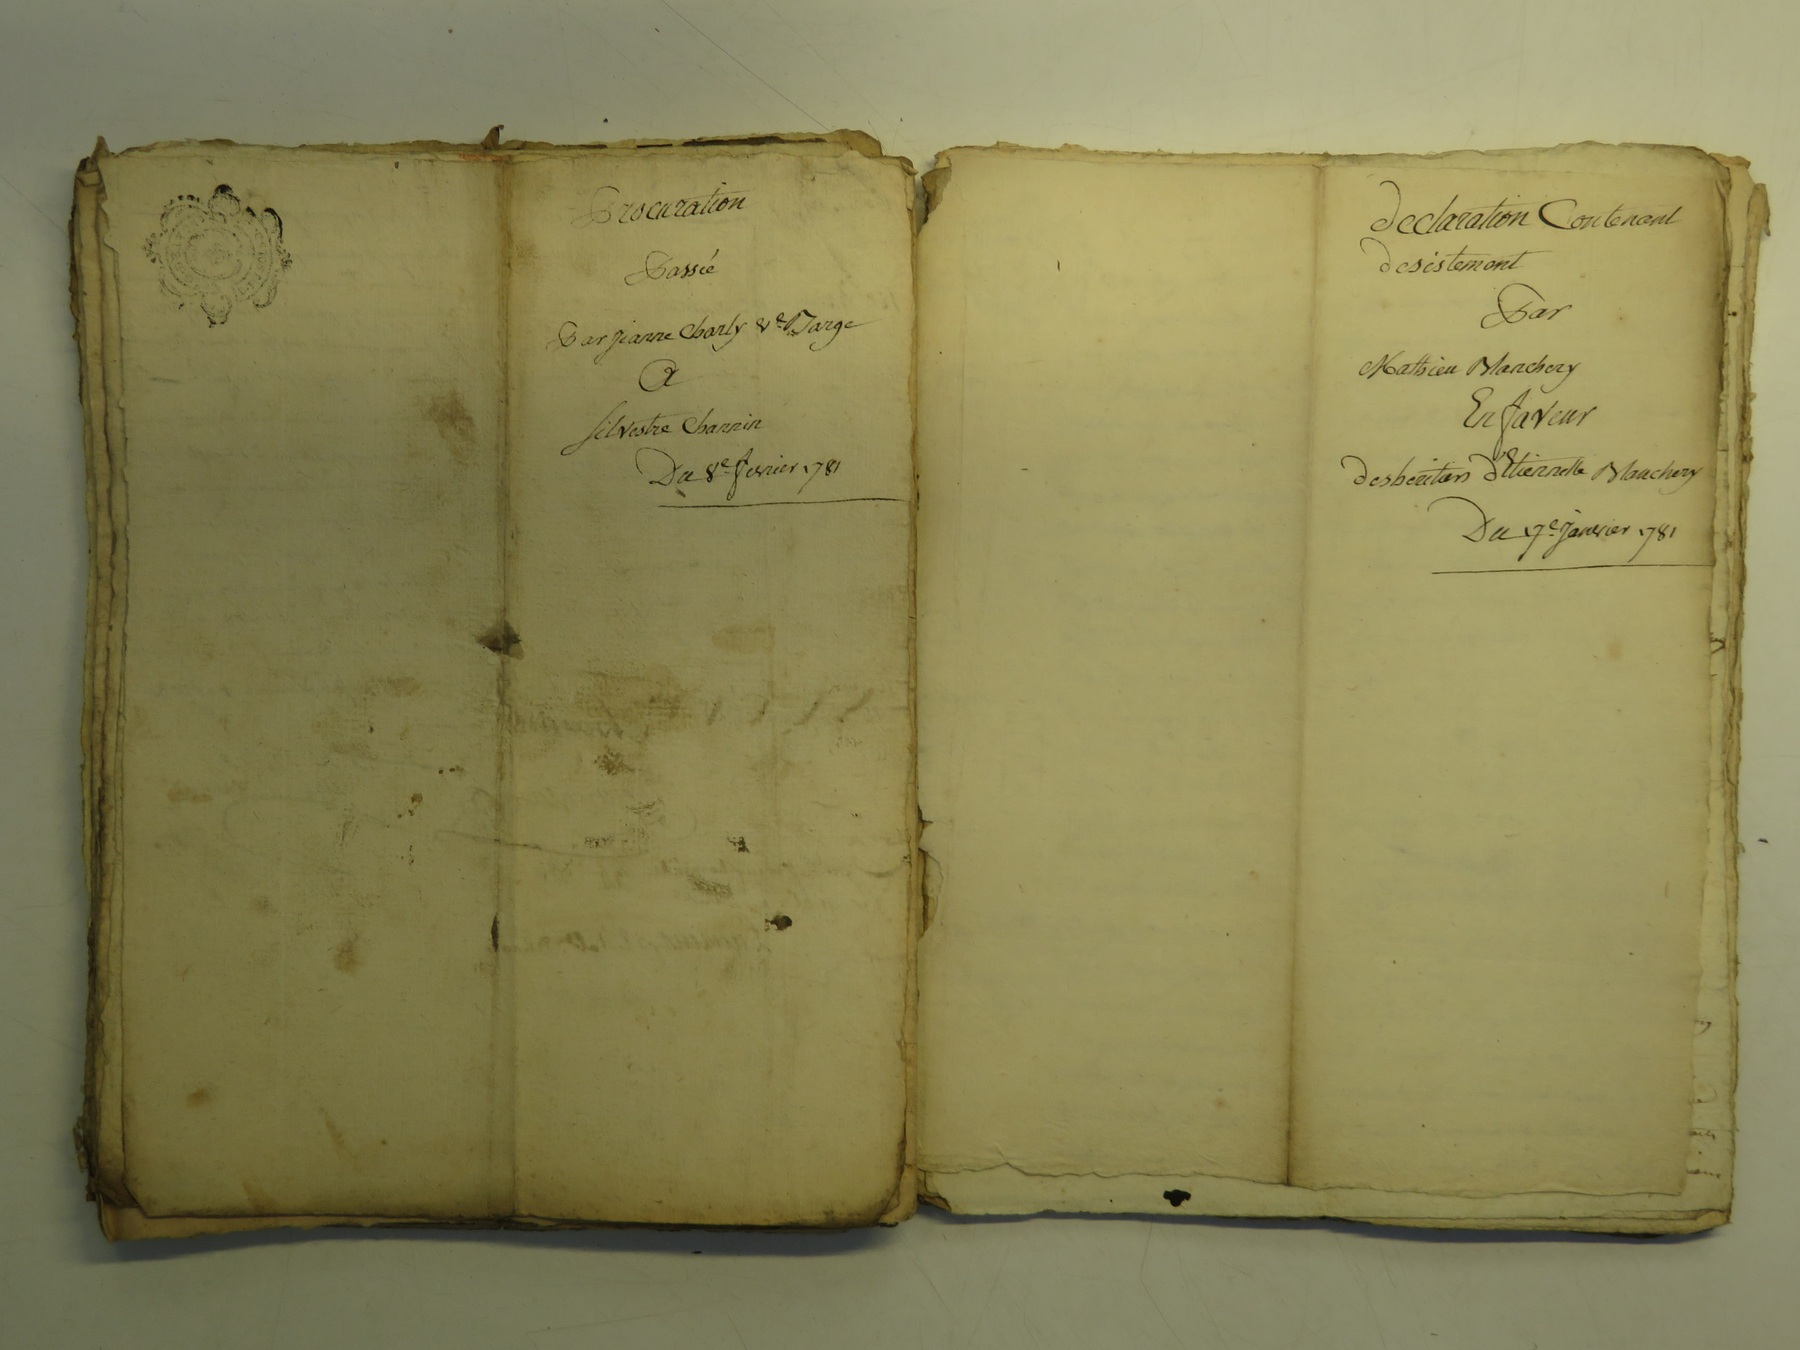 Procuration
Passé
Par jeanne Charly Ve Darge
A
silvestre Channin
Du 8e fevrier 1781
declaration Contenant
desistement
Par
Mathieu Blanchery
En faveur
des heritiers d'Etiennette Blanchery
Du 17e janvier 1781